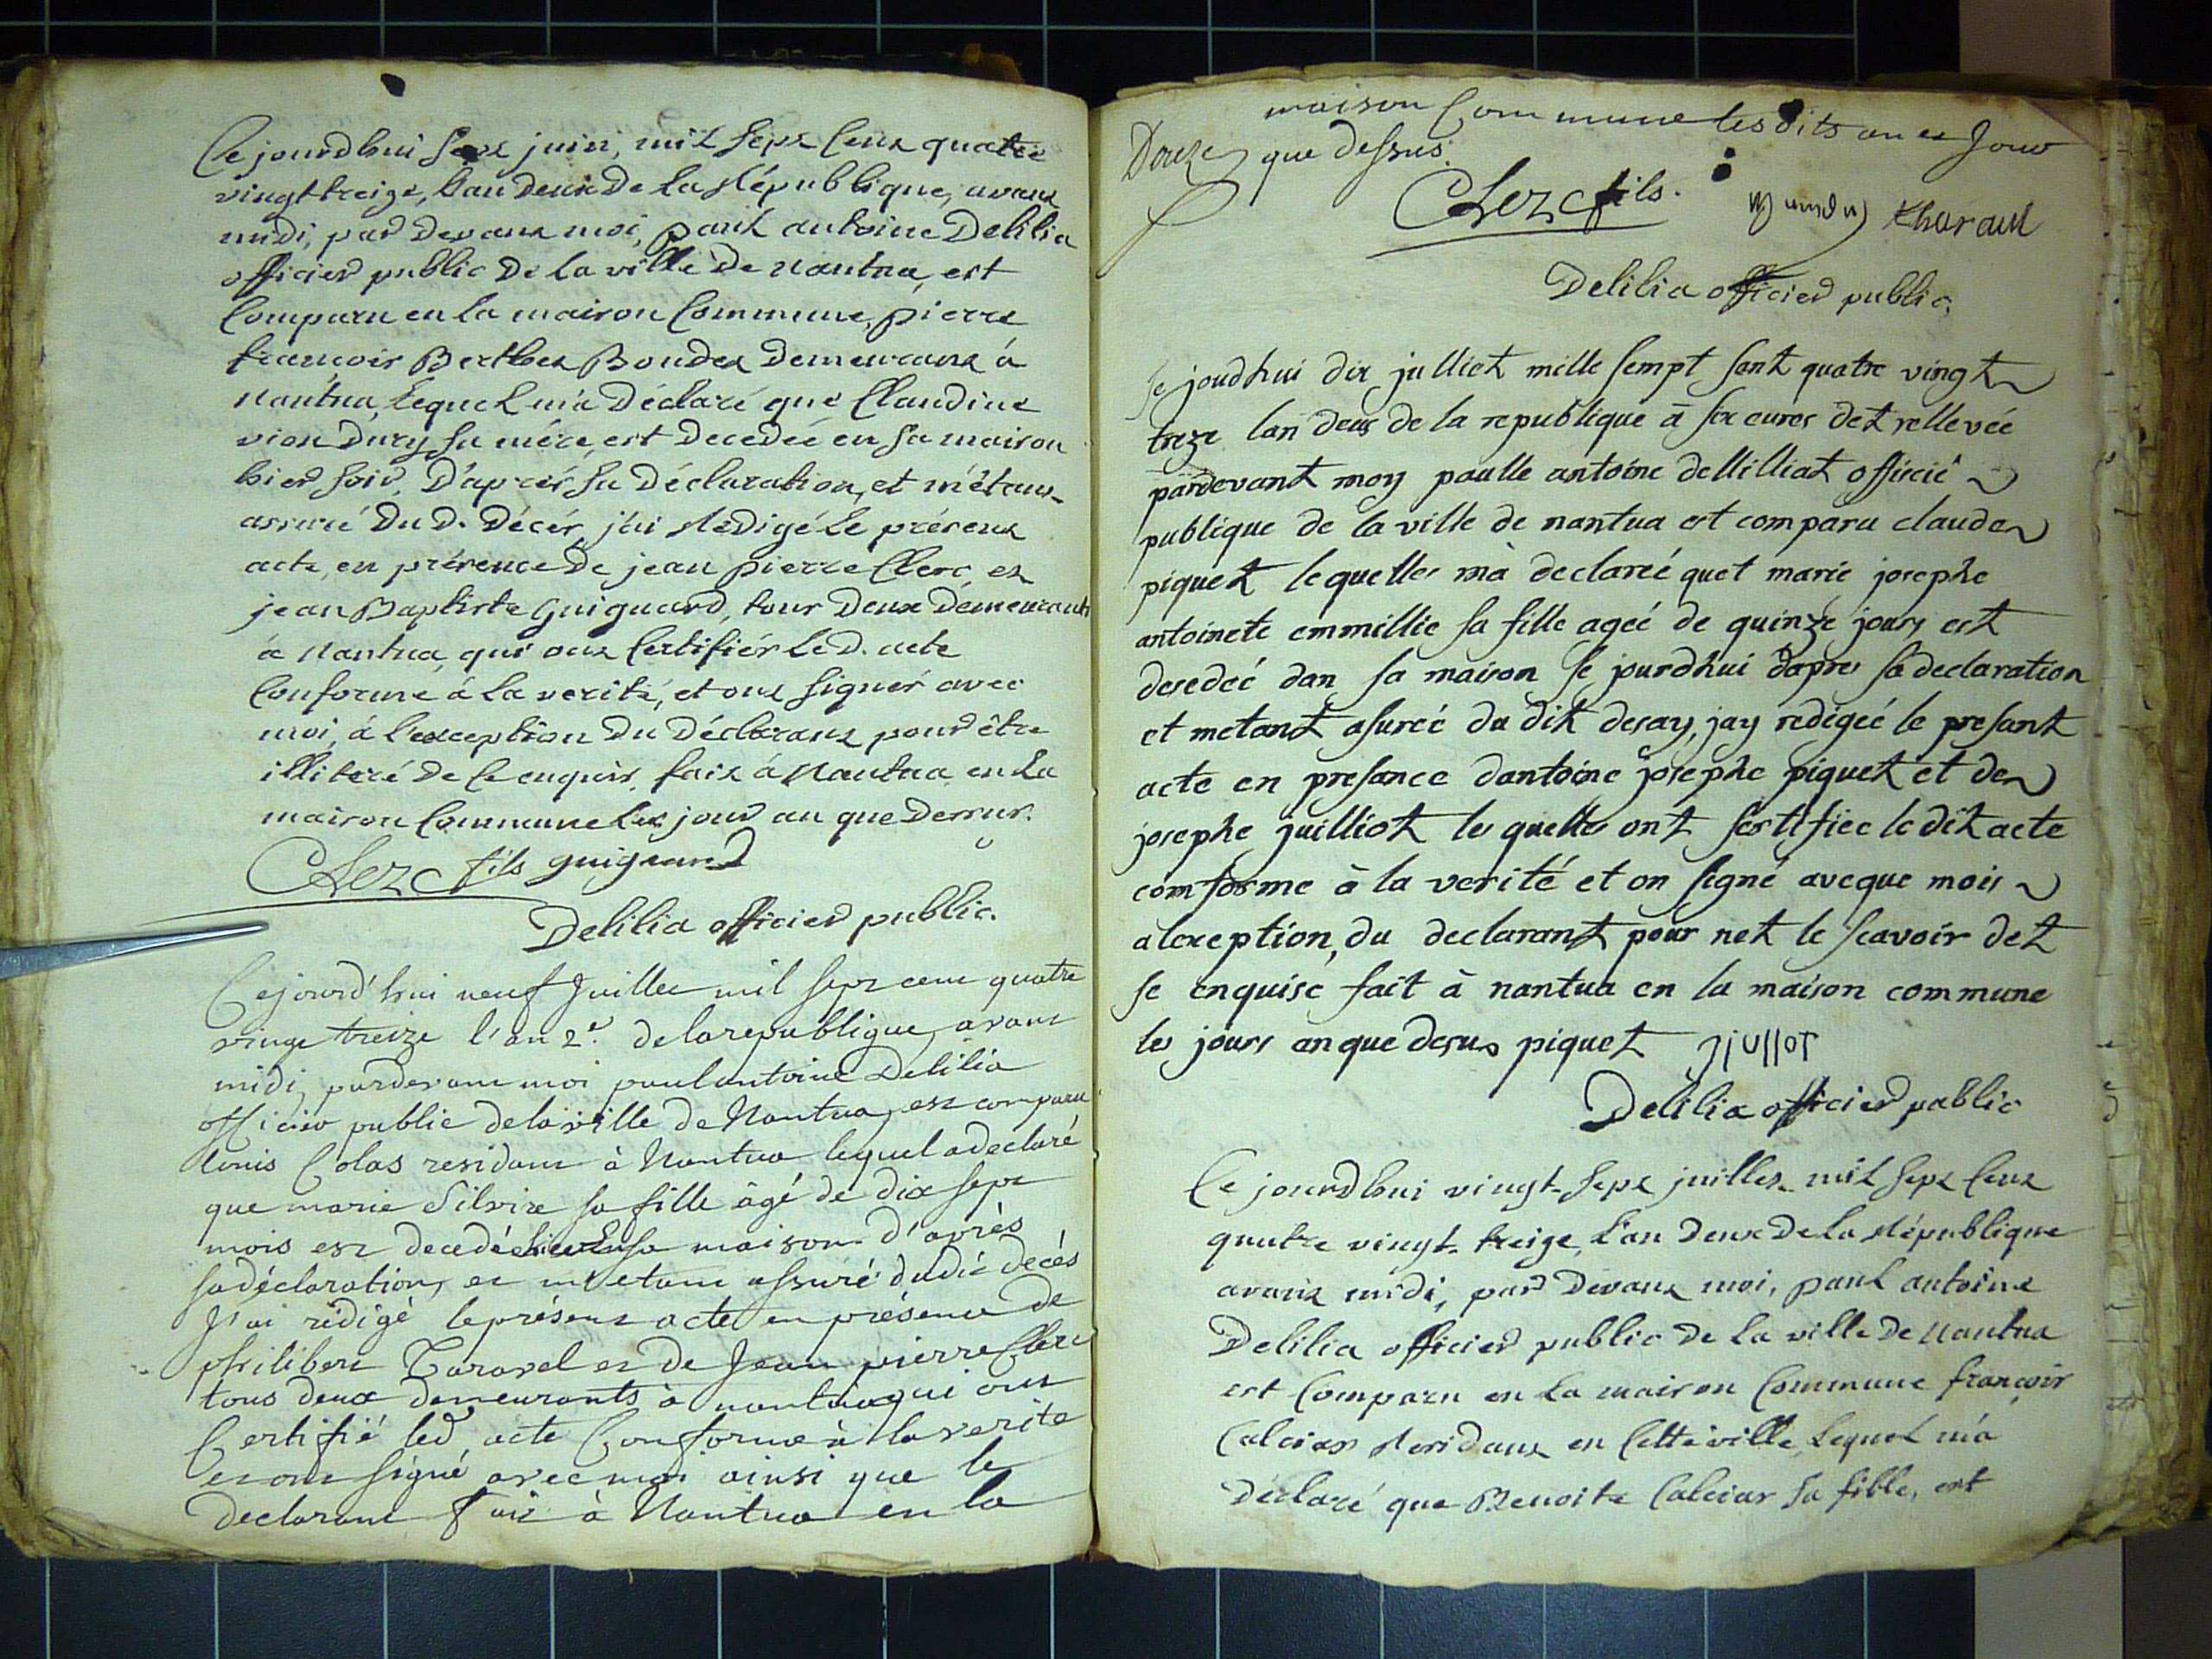 Ce jourdhui sept juin, mil sept Cent quatre
vingt treize, l'an deux de la République, avant
midi, par devant moi, paul antoine Delilia
officier public de la ville de Nantua, est
Comparu en la maison Commune, pierre
francois Berthet Bondet demeurant à
Nantua, lequel m'a Déclaré que Claudine
sa mére, est decedée en sa maison
hier soir, D'aprés sa Déclaration, et m'étant
assuré Du D. Décés, j'ai Rédigé le présent
acte, en présence de jean pierre Clerc, et
jean Baptiste Guignard, tous deux demeurants
à Nantua, qui ont Certifiés le d. acte
Conforme à la verité, et ont signés avec
moi, à l'exception Du Déclarant pour être
illiteré de ce enquis, fait à Nantua en la
maison Commune les jour an que Dessus.
Clerc fils guignard
Delilia officier public.
Cejourd'hui neuf Juillet mil sept cent quatre
vingt treize l'an 2e. de la republique, avant
midi, pardevant moi paul antoine Delilia
officier public de la ville de Nantua, est comparu
Louis Colas residant à Nantua lequel a declaré
que marie Silvie sa fille âgé de dix sept
mois est decedé hier en sa maison d'après
sa déclaration, et m'etant assuré dudit decès
J'ai rédigé le présent acte en présence de
philibert Taravel et de Jean pierre Clerc
tous deux demeurants à nantua qui ont
Certifié led. acte Conforme à la verité
et ont signé avec moi ainsi que le
declarant fait à Nantua en la
maison Commune les dits an et Jour
Douze que dessus.
Clerc fils. tharavel
Delilia officier public,
se joudhui dix julliet mille sempt sant quatre vingt
treze lan deus de la republique à six eures det rellevéé
pardevant moy paulle antoine dellilliat officié
publique de la ville de nantua est comparu claude
piquet lequelles mà declareé quet marie josephe
antoinete emmillie sa fille ageé de quinze jours est
desedeé dan sa maison se jourdhui dapres sa declaration
et metant asureé du dit desay, jay redigeé le presant
acte en presance dantoine josephe piquet et de
josephe juilliot les quelles ont sertifiee le dit acte
comforme à la verité et on signé aveque mois
alexeption, du declarant pour net le scavoir det
se enquise fait à nantua en la maison commune
les jours an que desus piquet jjullot
Delilia officier public
Ce jourdhui vingt-sept juillet mil sept Cent
quatre vingt-treize, l'an Deux de la République
avant midi, par Devant moi, paul antoine
Delilia officier public de la ville de Nantua
est Comparu en la maison Commune françois
Calciat Residant en Cette ville, lequel m'a
Déclaré que Benoite Calciat sa fille, est